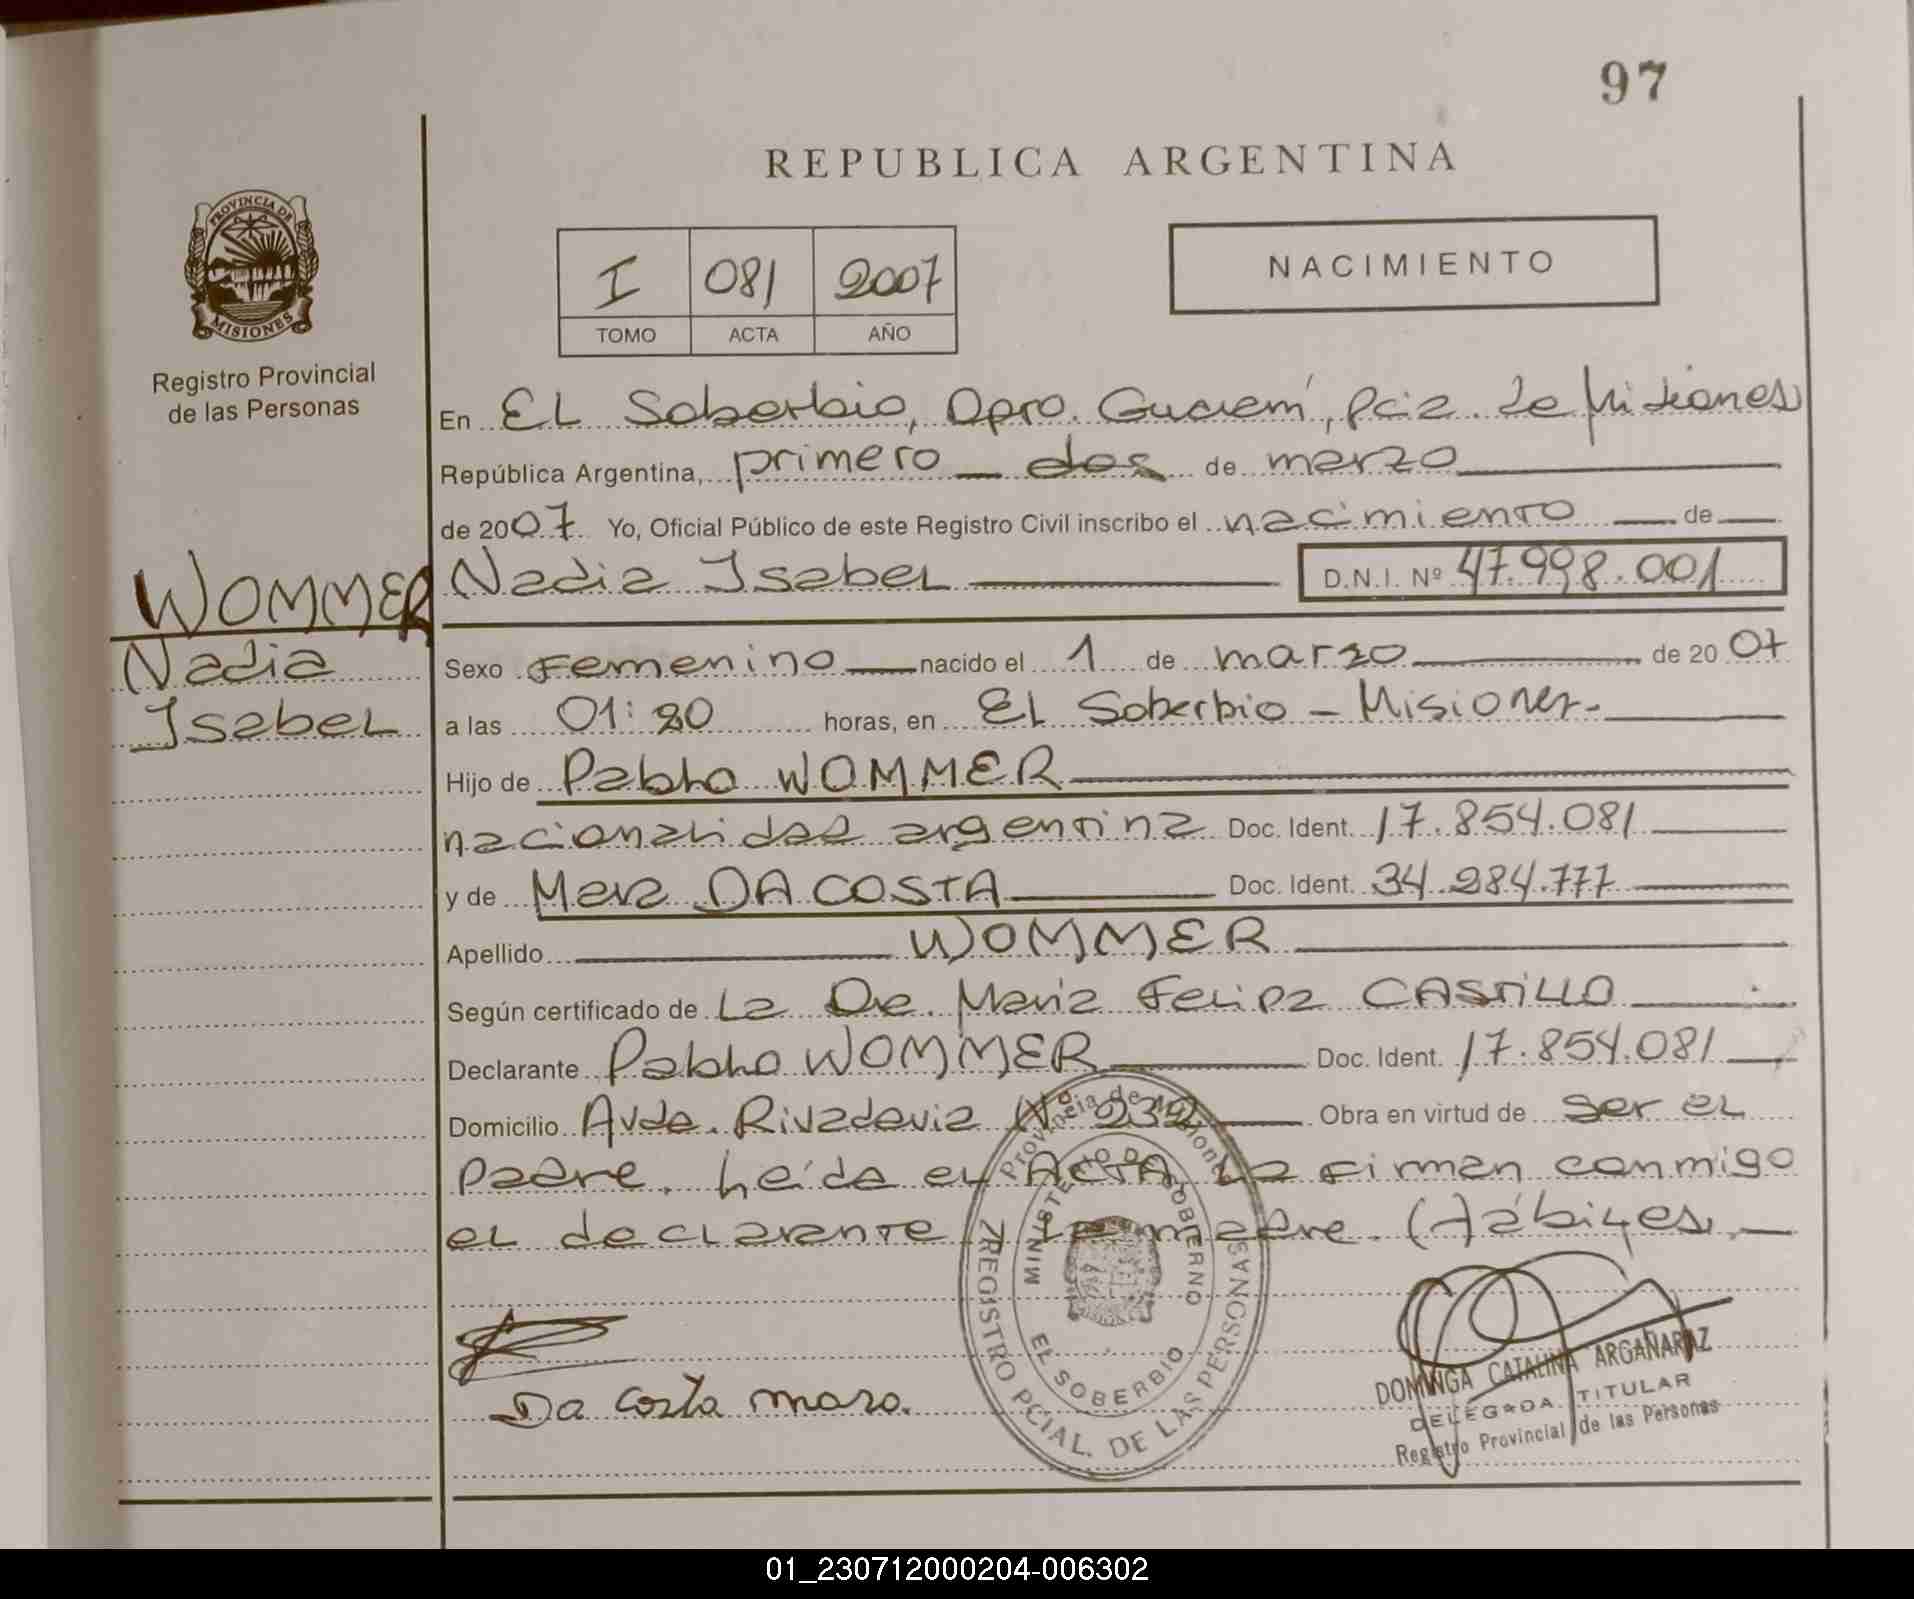 97
REPUBLICA ARGENTINA
PROVINCIA DE
MISIONES
Registro Provincial
de las Personas
I 081 2007
TOMO ACTA AÑO
NACIMIENTO
En EL Soberbio, Dpto. Guaraní, Pcia. de Misiones
República Argentina, primero dos de marzo
de 2007 Yo, Oficial Público de este Registro Civil inscribo el nacimiento de
WOMMER
Nadia
Isabel
Nadia Isabel D.N.I. Nº 47.998.001
Sexo Femenino nacido el 1 de marzo de 2007
a las 01:20 horas, en El Soberbio - Misiones.
Hijo de Pablo WOMMER
nacionalidad argentina Doc. Ident. 17.854.081
y de Mara DA COSTA Doc. Ident. 34.284.777
Apellido WOMMER
Según certificado de La Dra. María Felipa CASTILLO
Declarante Pablo WOMMER Doc. Ident. 17.854.081
Domicilio Avda. Rivadavia Nº 232 Obra en virtud de ser el
padre. Leída el ACTA, La firman conmigo
el declarante y la madre. (H)ábiles.
Provincia de Misiones
MINISTERIO DE GOBIERNO
EL SOBERBIO
REGISTRO PCIAL. DE LAS PERSONAS
Da Costa mara.
DOMINGA CATALINA ARGAÑARAZ
DELEGADA TITULAR
Registro Provincial de las Personas
01_230712000204-006302